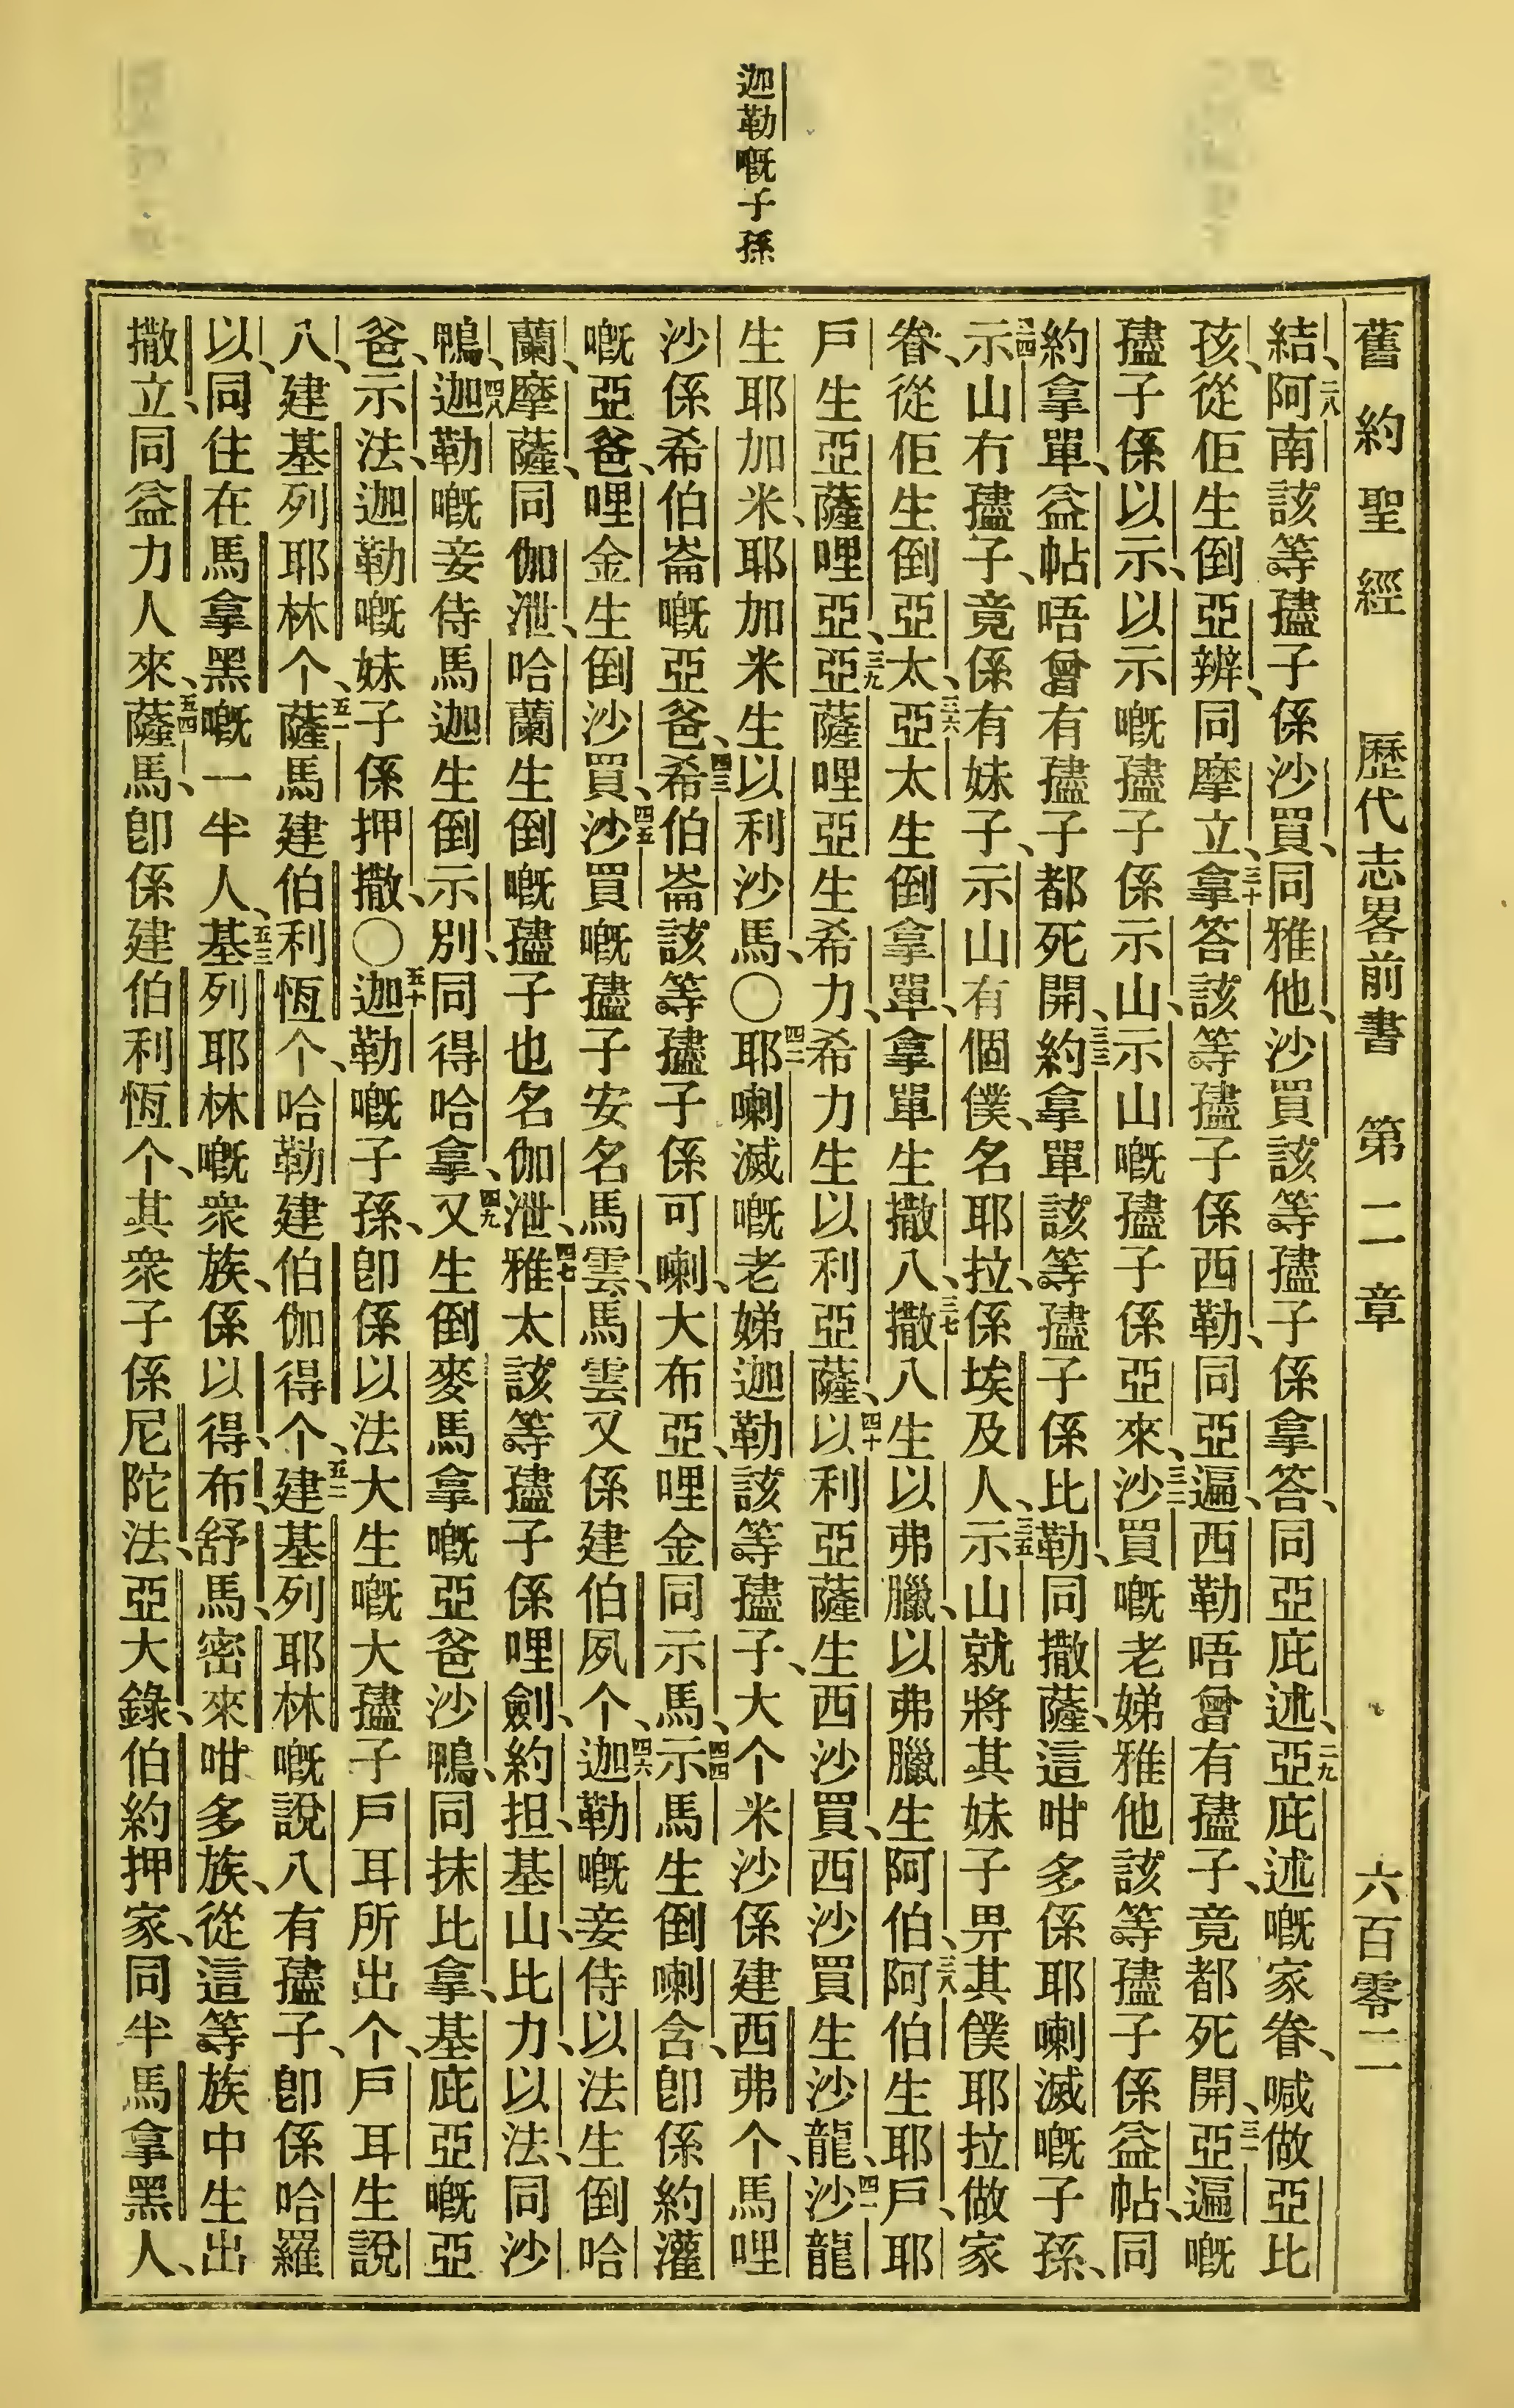 迦勒嘅子孫
舊約聖經 歷代志畧前書 第二章 六百零二
結、二八阿南該等孻子係沙買、同雅他、沙買該等孻子係拿答、同亞庇述、二九亞庇述嘅家眷、喊做亞比
孩、從佢生倒亞辨、同摩立、三十拿答該等孻子係西勒、同亞遍、西勒唔曾有孻子、竟都死開、三一亞遍嘅
孻子係以示、以示嘅孻子係示山、示山嘅孻子係亞來、三二沙買嘅老娣雅他該等孻子係益帖、同
約拿單、益帖唔曾有孻子都死開、三三約拿單該等孻子係比勒、同撒薩、這咁多係耶喇滅嘅子孫、
三四示山冇孻子、竟係有妹子、示山有個僕、名耶拉、係埃及人、三五示山就將其妹子畀其僕耶拉做家
眷、從佢生倒亞太、三六亞太生倒拿單、拿單生撒八、三七撒八生以弗臘、以弗臘生阿伯、三八阿伯生耶戶、耶
戶生亞薩哩亞、三九亞薩哩亞生希力、希力生以利亞薩、四十以利亞薩生西沙買、西沙買生沙龍、四一沙龍
生耶加米、耶加米生以利沙馬、〇四二耶喇滅嘅老娣迦勒該等孻子、大个米沙係建西弗个、馬哩
沙係希伯崙嘅亞爸、四三希伯崙該等孻子係可喇、大布亞、哩金同示馬、四四示馬生倒喇含、卽係約灌
嘅亞爸、哩金生倒沙買、四五沙買嘅孻子安名馬雲、馬雲又係建伯夙个、四六迦勒嘅妾侍以法生倒哈
蘭、摩薩、同伽泄、哈蘭生倒嘅孻子也名伽泄、四七雅太該等孻子係哩劍、約担、基山、比力、以法、同沙
鴨、四八迦勒嘅妾侍馬迦生倒示別、同得哈拿、四九又生倒麥馬拿嘅亞爸沙鴨、同抹比拿、基庇亞嘅亞
爸、示法、迦勒嘅妹子係押撒、〇五十迦勒嘅子孫、卽係以法大生嘅大孻子戶耳所出个、戶耳生說
八、建基列耶林个、五一薩馬建伯利恆个、哈勒建伯伽得个、五二建基列耶林嘅說八有孻子、卽係哈羅
以、同住在馬拿黑嘅一半人、五三基列耶林嘅衆族、係以得、布、舒馬、密來咁多族、從這等族中生出
撒立、同益力人來、五四薩馬、卽係建伯利恆个、其衆子係尼陀法、亞大錄、伯約押家、同半馬拿黑人、